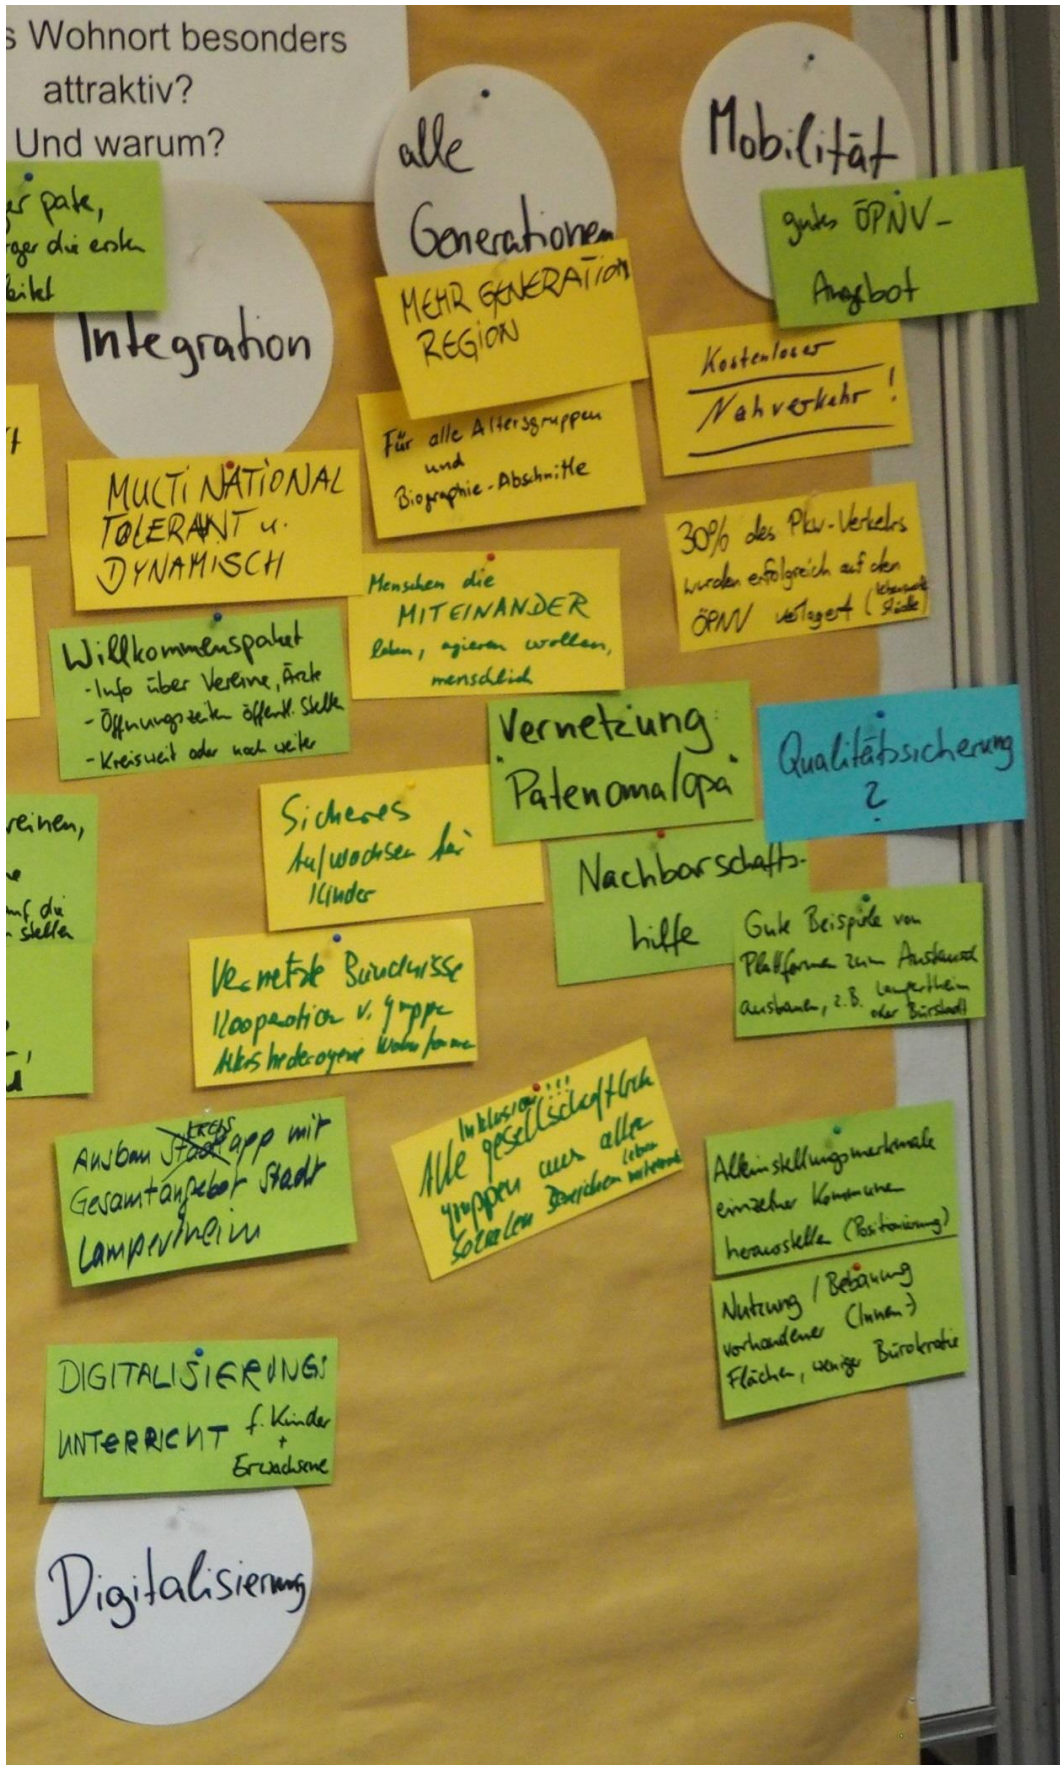 s Wohnort besonders
attraktiv?
Und warum?
alle
Generationen
Mobilität
er pate,
ger die ersten
Integration
MEHR GENERATION
REGION
gutes ÖPNV-
Angebot
Kostenloser
Nahverkehr!
Für alle Altersgruppen
und
Biographie-Abschnitte
MULTINATIONAL
TOLERANT u.
DYNAMISCH
30% des Pkw-Verkehrs
wurden erfolgreich auf den
ÖPNV verlagert (lebenswerte
Städte)
Menschen die
MITEINANDER
leben, agieren wollen,
menschlich
Willkommenspaket
- Info über Vereine, Ärzte
- Öffnungszeiten öffentl. Stellen
- Kreisweit oder noch weiter
Vernetzung
"Patenoma/opa"
Qualitätssicherung
?
Sicheres
Aufwachsen für
Kinder
reinen,
e
auf die
stellen
Nachbarschafts-
hilfe
Gute Beispiele von
Plattformen zum Austausch
ausbauen, z.B. Lampertheim
oder Bürstadt
Vernetzte Bündnisse
Kooperation v. Gruppe
Altersheterogene Wohnformen
Inklusion!!!
Alle gesellschaftlich
gruppen aus alle
sozialen Bereichen leben
miteinander
Ausbau Stadt KREIS app mit
Gesamtangebot Stadt
Lampertheim
Alleinstellungsmerkmale
einzelner Kommunen
herausstellen (Positionierung)
Nutzung / Bebauung
vorhandener (Innen-)
Flächen, weniger Bürokratie
DIGITALISIERUNGS
UNTERRICHT f. Kinder
+
Erwachsene
Digitalisierung